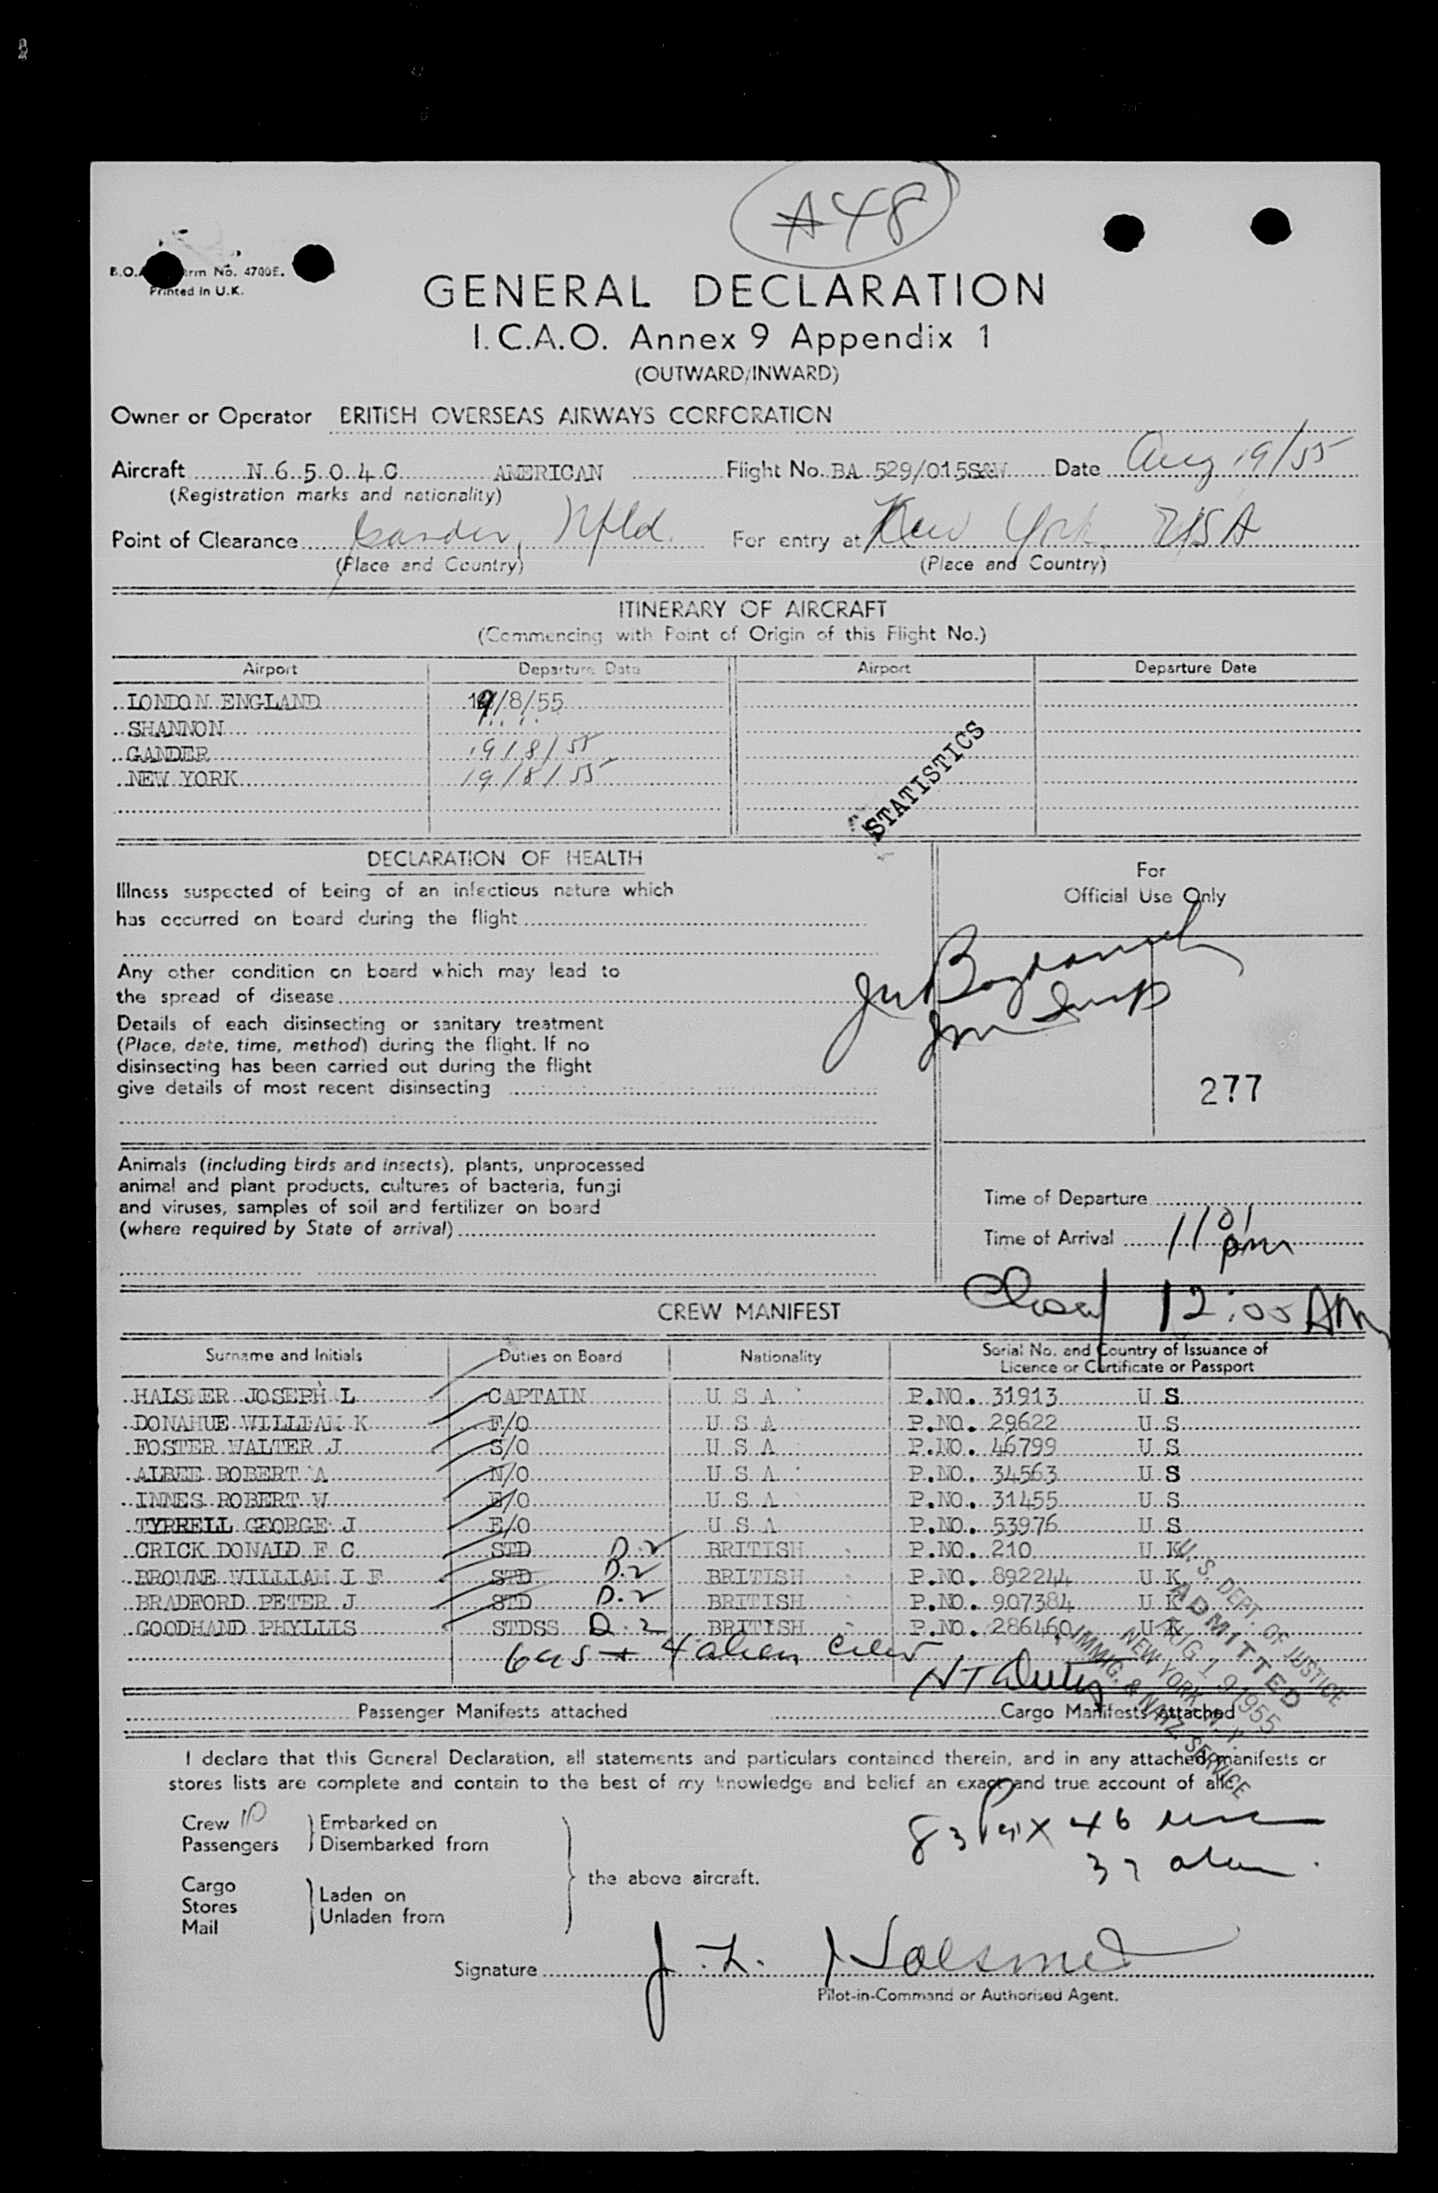 A48
B.O.A Form No. 4700E.
Printed in U.K.
GENERAL DECLARATION
I.C.A.O. Annex 9 Appendix 1
(OUTWARD/INWARD)
Owner or Operator BRITISH OVERSEAS AIRWAYS CORPORATION
Aircraft N 6 5 0 4 C AMERICAN Flight No. BA 529/015S&W Date Aug 19/55
(Registration marks and nationality)
Point of Clearance Gander, Nfld. For entry at New York, USA
(Place and Country) (Place and Country)
ITINERARY OF AIRCRAFT
(Commencing with Point of Origin of this Flight No.)
Airport Departure Date Airport Departure Date
LONDON ENGLAND 19/8/55
SHANNON
GANDER 19/8/55
NEW YORK 19/8/55
STATISTICS
DECLARATION OF HEALTH
For
Official Use Only
Illness suspected of being of an infectious nature which
has occurred on board during the flight
Any other condition on board which may lead to
the spread of disease
Details of each disinsecting or sanitary treatment
(Place, date, time, method) during the flight. If no
disinsecting has been carried out during the flight
give details of most recent disinsecting
Imm Insp
277
Animals (including birds and insects), plants, unprocessed
animal and plant products, cultures of bacteria, fungi
and viruses, samples of soil and fertilizer on board
(where required by State of arrival)
Time of Departure
Time of Arrival 11 01 pm
12:00 AM
CREW MANIFEST
Surname and Initials Duties on Board Nationality Serial No. and Country of Issuance of
Licence or Certificate or Passport
HALSMER JOSEPH L CAPTAIN U S A P.NO. 31913 U S
DONAHUE WILLIAM K F/O U S A P.NO. 29622 U S
FOSTER WALTER J S/O U S A P.NO. 46799 U S
ALBEE ROBERT A N/O U S A P.NO. 34563 U S
INNES ROBERT W E/O U S A P.NO. 31455 U S
TYRRELL GEORGE J E/O U S A P.NO. 53976 U S
CRICK DONALD F C STD D.2 BRITISH P.NO. 210 U K
BROWNE WILLIAM I F STD D.2 BRITISH P.NO. 892244 U K
BRADFORD PETER J STD D.2 BRITISH P.NO. 907384 U K
GOODHAND PHYLLIS STDSS D.2 BRITISH P.NO. 286460 U K
6 US + 4 alien crew
U. S. DEPT. OF JUSTICE
ADMITTED
AUG 19 1955
NEW YORK, N. Y.
IMMIG. & NATZ. SERVICE
Passenger Manifests attached Cargo Manifests attached
I declare that this General Declaration, all statements and particulars contained therein, and in any attached manifests or
stores lists are complete and contain to the best of my knowledge and belief an exact and true account of all:
Crew 10 Embarked on
Passengers Disembarked from
83 Pax 46
37 alien
the above aircraft.
Cargo
Stores Laden on
Mail Unladen from
Signature J. L. Halsmer
Pilot-in-Command or Authorised Agent.